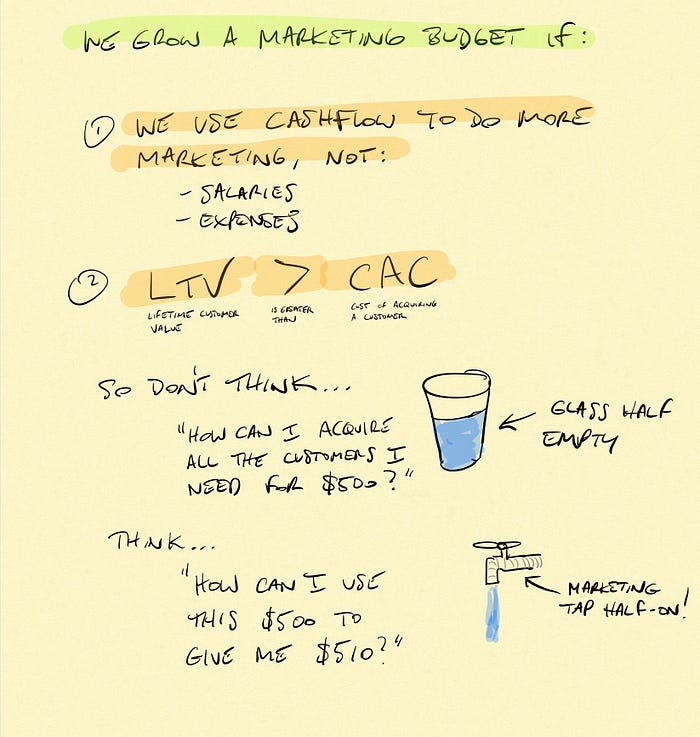 WE GROW A MARKETING BUDGET IF:
1 WE USE CASHFLOW TO DO MORE
MARKETING, NOT:
- SALARIES
- EXPENSES
2 LTV > CAC
LIFETIME CUSTOMER
VALUE
IS GREATER
THAN
COST OF ACQUIRING
A CUSTOMER
SO DON'T THINK...
"HOW CAN I ACQUIRE
ALL THE CUSTOMERS I
NEED FOR $500?"
GLASS HALF
EMPTY
THINK...
"HOW CAN I USE
THIS $500 TO
GIVE ME $510?"
MARKETING
TAP HALF-ON!